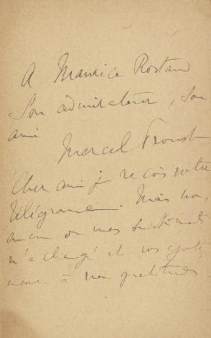 A Maurice Rostand
Son admirateur, son
ami
Marcel Proust
Cher ami je reçois votre
télégramme. Mais non,
mes sentiments
n'a changé et
à ma gratitude